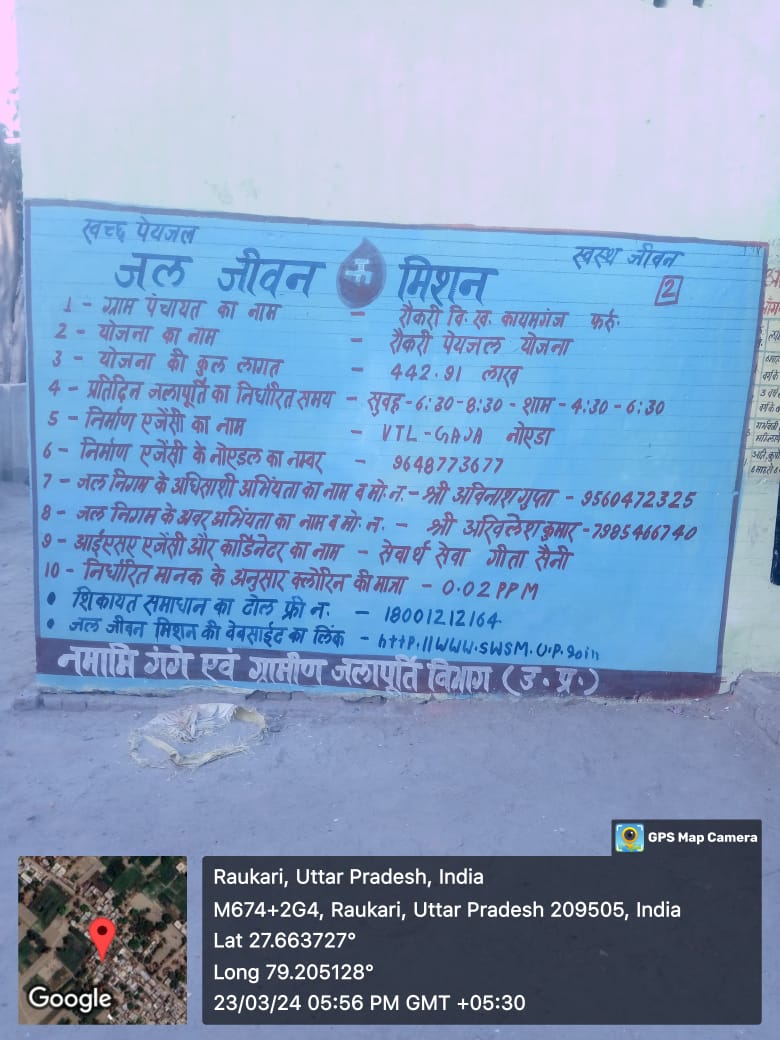 स्वच्छ पेयजल
स्वस्थ जीवन
जल जीवन मिशन
2
1 - ग्राम पंचायत का नाम - रौकरी वि.ख. कायमगंज फर्रु.
2 - योजना का नाम - रौकरी पेयजल योजना
3 - योजना की कुल लागत - 442.91 लाख
4 - प्रतिदिन जलापूर्ति का निर्धारित समय - सुवह-6:30-8:30 - शाम - 4:30 - 6:30
5 - निर्माण एजेंसी का नाम - VTL - GAJA नोएडा
6 - निर्माण एजेंसी के नोएडल का नम्वर - 9648773677
7 - जल निगम के अधिसाशी अभिंयता का नाम व मो.न. - श्री अविनाश गुप्ता - 9560472325
8 - जल निगम के अवर अभिंयता का नाम व मो.न. - श्री अखिलेश कुमार - 7985466740
9 - आईएसए एजेंसी और कार्डिनेटर का नाम - सेवार्थ सेवा गीता सैनी
10 - निर्धारित मानक के अनुसार क्लोरिन की मात्रा - 0.02 PPM
• शिकायत समाधान का टोल फ्री न. - 18001212164
• जल जीवन मिशन की वेबसाईट का लिंक - http.//www.swsm.u.p.goin
नमामि गंगे एवं ग्रामीण जलापूर्ति विभाग (उ.प्र.)
GPS Map Camera
Raukari, Uttar Pradesh, India
M674+2G4, Raukari, Uttar Pradesh 209505, India
Lat 27.663727°
Long 79.205128°
23/03/24 05:56 PM GMT +05:30
Google